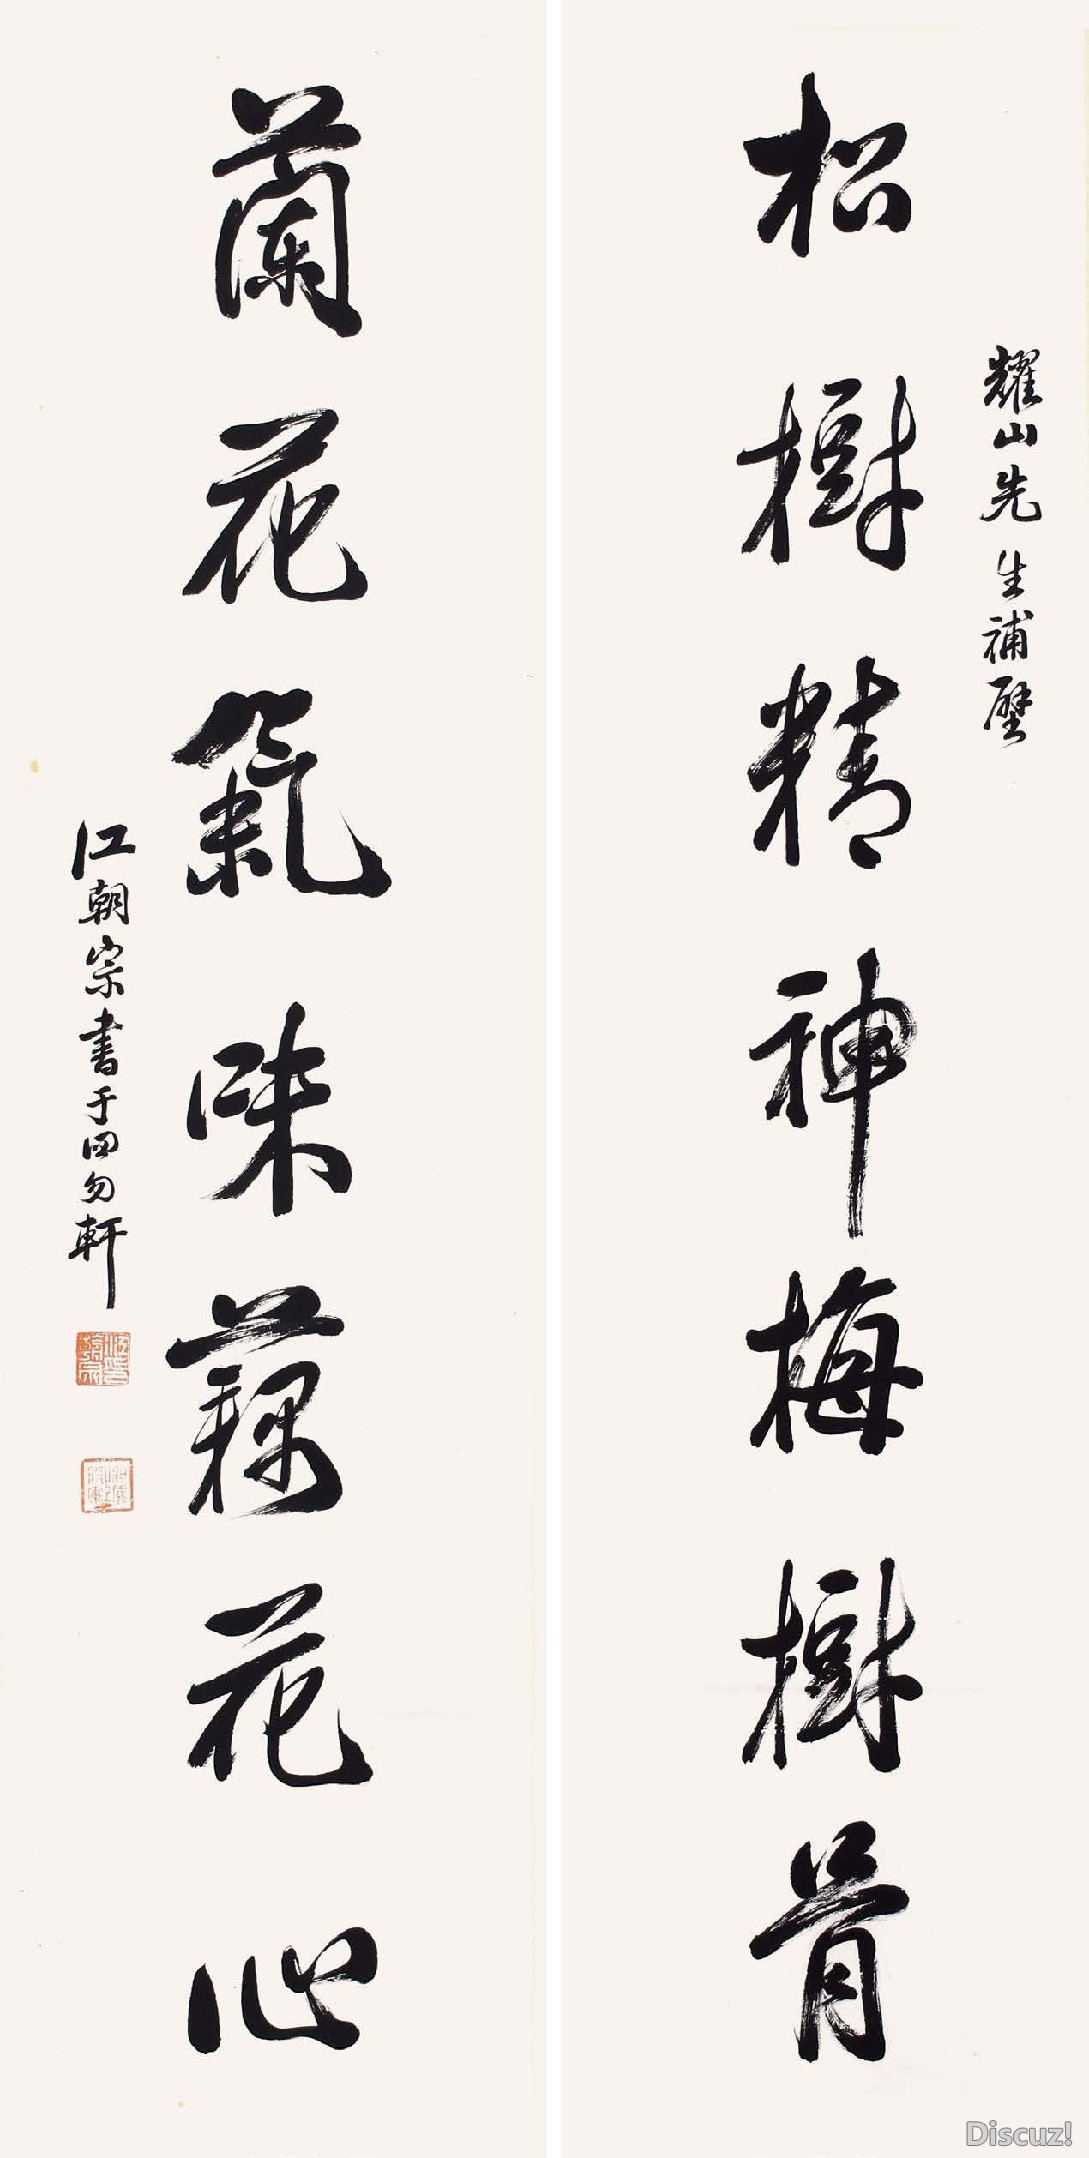 耀山先生補壁
松樹精神梅樹骨
蘭花氣味藕花心
江朝宗書于四勿軒
Discuz!